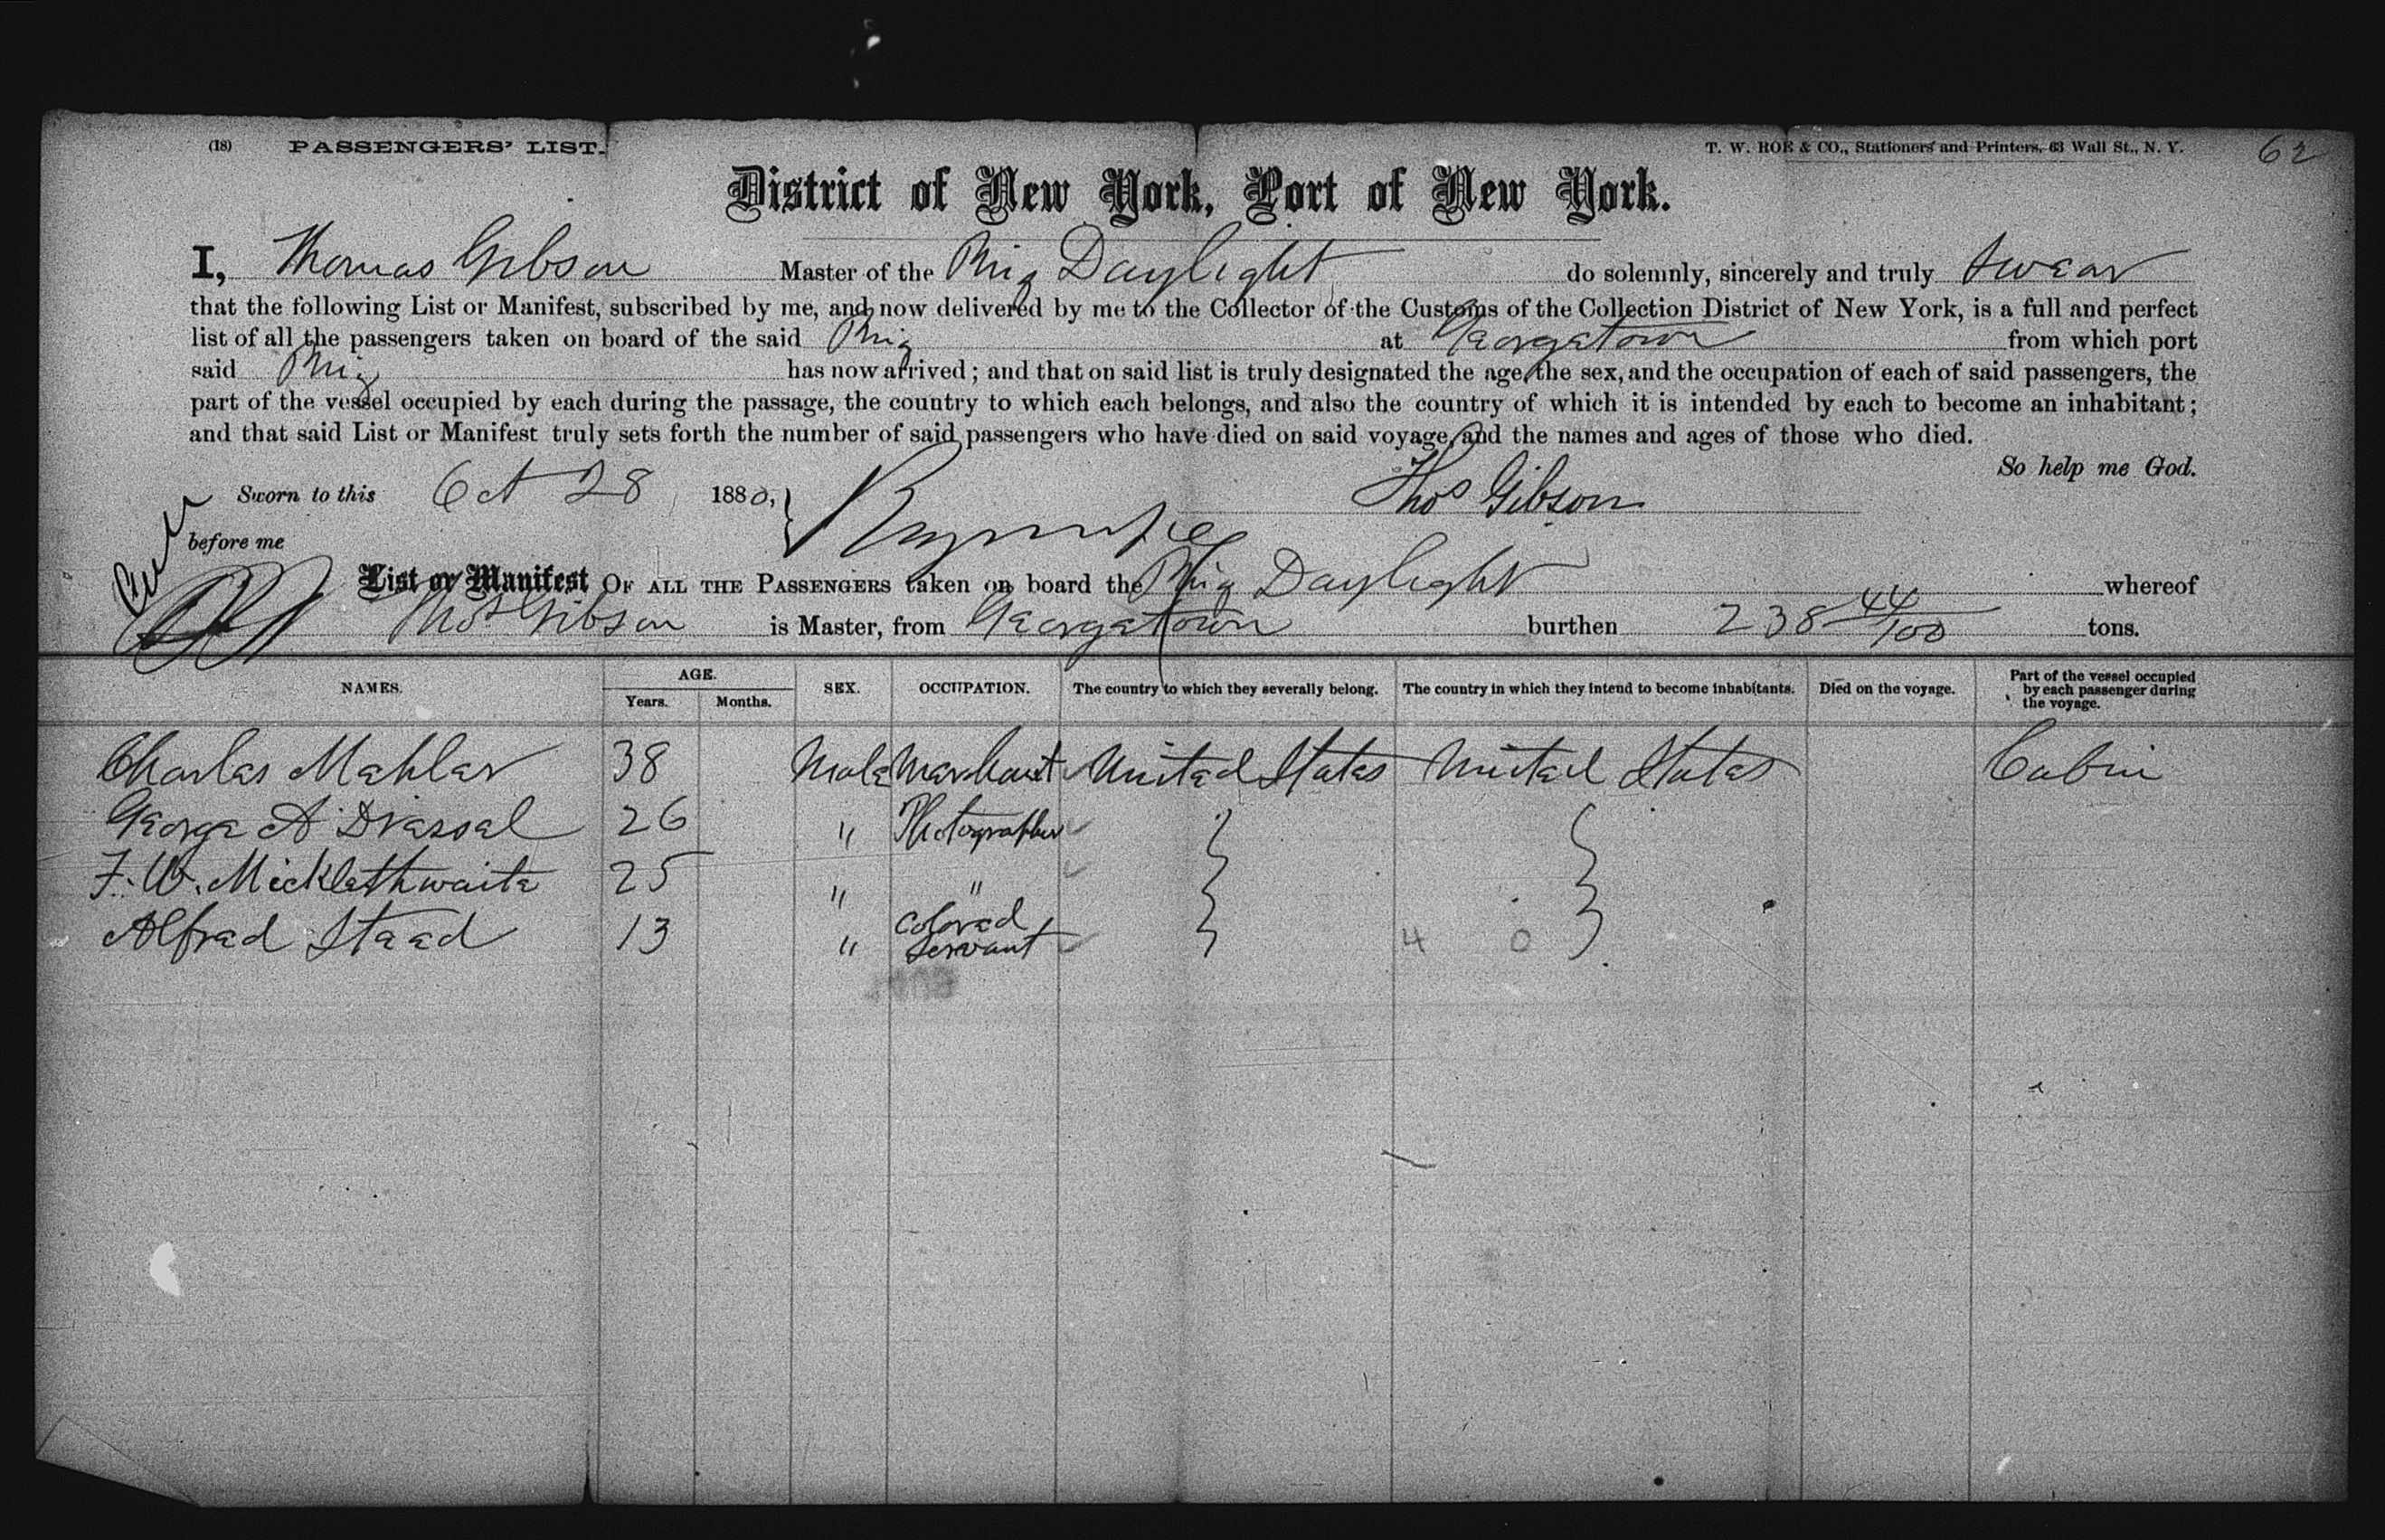 (18) PASSENGERS' LIST. T. W. ROE & CO., Stationers and Printers, 63 Wall St., N. Y. 62
District of New York, Port of New York.
I, Thomas Gibson Master of the Brig Daylight do solemnly, sincerely and truly swear
that the following List or Manifest, subscribed by me, and now delivered by me to the Collector of the Customs of the Collection District of New York, is a full and perfect
list of all the passengers taken on board of the said Brig at Georgetown from which port
said Brig has now arrived; and that on said list is truly designated the age, the sex, and the occupation of each of said passengers, the
part of the vessel occupied by each during the passage, the country to which each belongs, and also the country of which it is intended by each to become an inhabitant;
and that said List or Manifest truly sets forth the number of said passengers who have died on said voyage, and the names and ages of those who died.
So help me God.
Sworn to this Oct 28 1880, Thos Gibson
before me
List or Manifest OF ALL THE PASSENGERS taken on board the Brig Daylight whereof
Thos Gibson is Master, from Georgetown burthen 238 44/100 tons.
NAMES. AGE. Years. Months. SEX. OCCUPATION. The country to which they severally belong. The country in which they intend to become inhabitants. Died on the voyage. Part of the vessel occupied by each passenger during the voyage.
Charles Mahler 38 Male Merchant United States United States Cabin
George A Dressel 26 " Photographer
F. W. Micklethwaite 25 " "
Alfred Steed 13 " Colored Servant 4 0